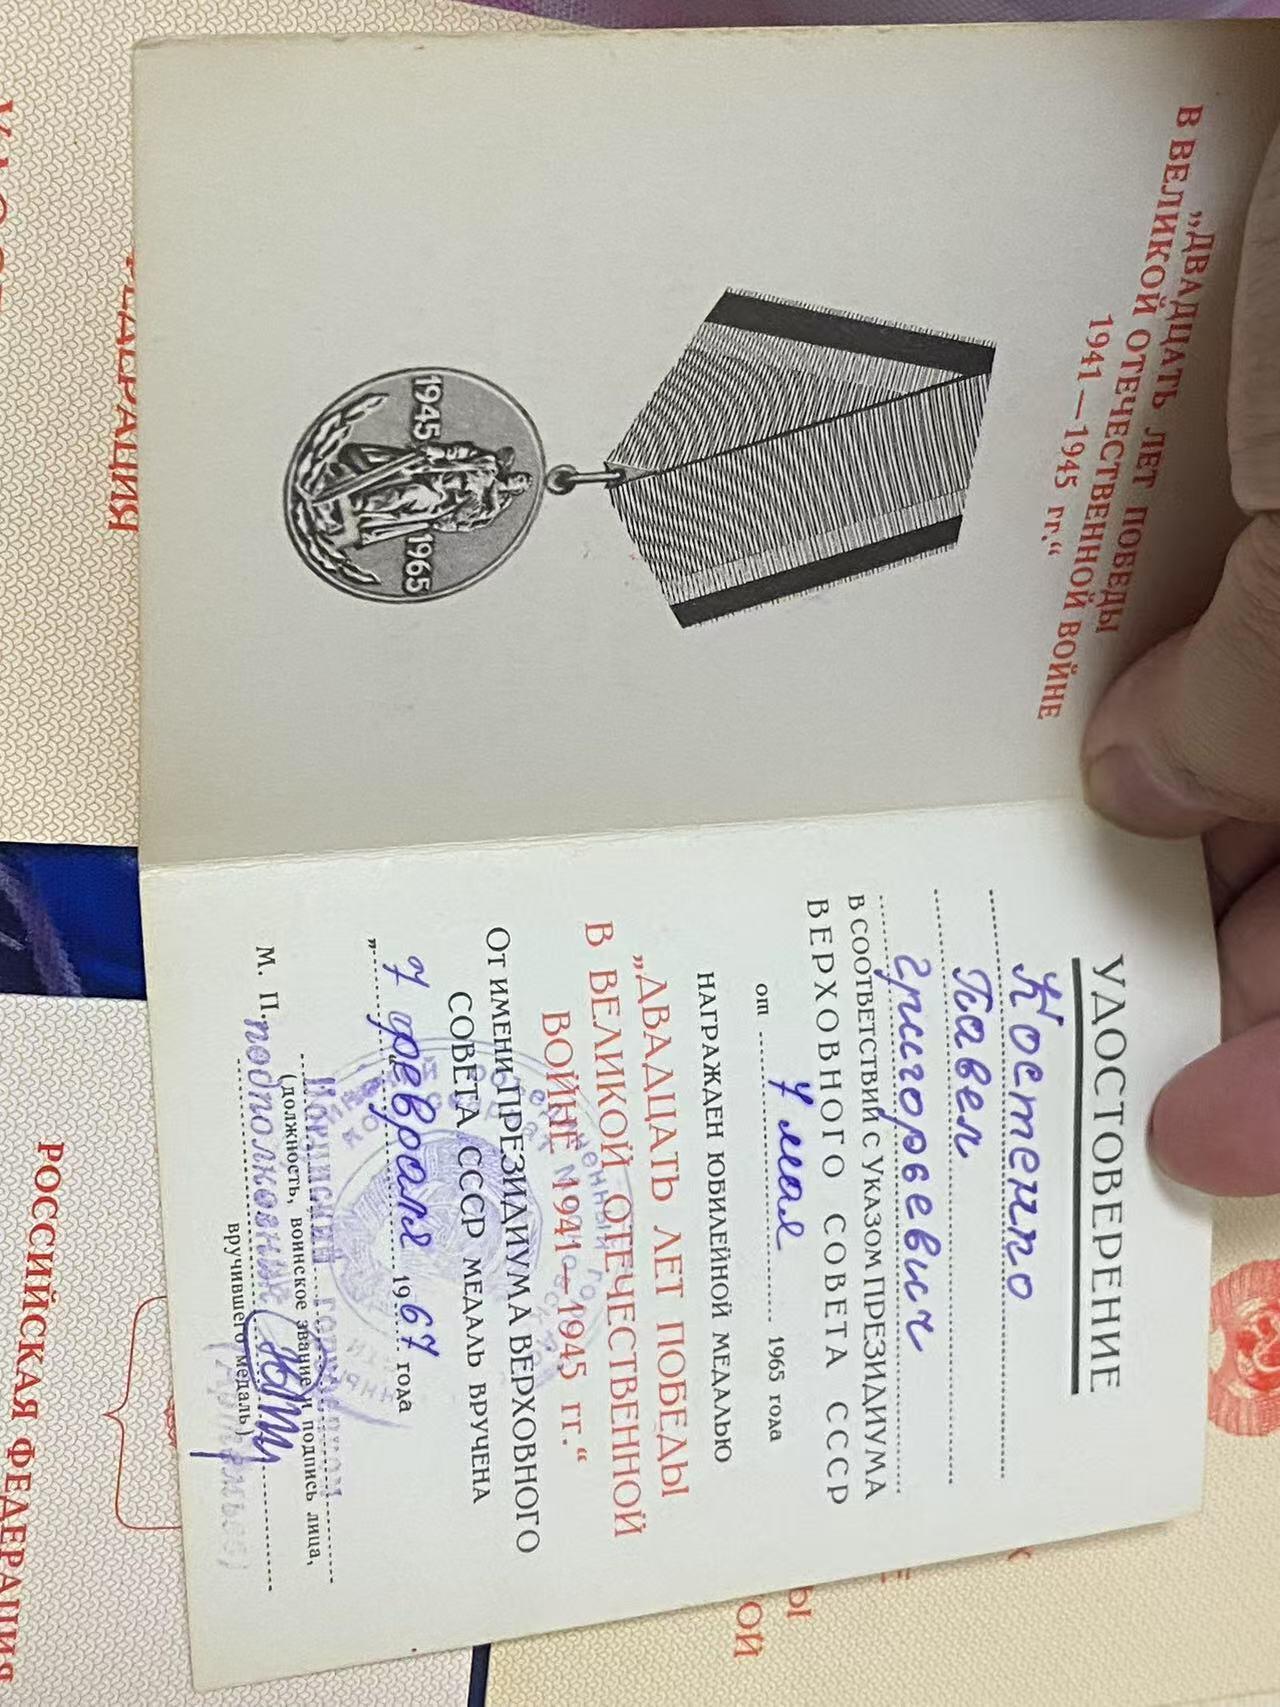 „ДВАДЦАТЬ ЛЕТ ПОБЕДЫ
В ВЕЛИКОЙ ОТЕЧЕСТВЕННОЙ ВОЙНЕ
1941—1945 гг.“
1945 1965
УДОСТОВЕРЕНИЕ
Костенко
Павел
Григорьевич
В СООТВЕТСТВИИ С УКАЗОМ ПРЕЗИДИУМА
ВЕРХОВНОГО СОВЕТА СССР
от 7 мая 1965 года
НАГРАЖДЕН ЮБИЛЕЙНОЙ МЕДАЛЬЮ
„ДВАДЦАТЬ ЛЕТ ПОБЕДЫ
В ВЕЛИКОЙ ОТЕЧЕСТВЕННОЙ
ВОЙНЕ 1941—1945 гг.“
От ИМЕНИ ПРЕЗИДИУМА ВЕРХОВНОГО
СОВЕТА СССР МЕДАЛЬ ВРУЧЕНА
„7 “ февраля 1967 года
(должность, воинское звание и подпись лица,
М. П. подполковник
вручившего медаль)
РОССИЙСКАЯ ФЕДЕРАЦИЯ